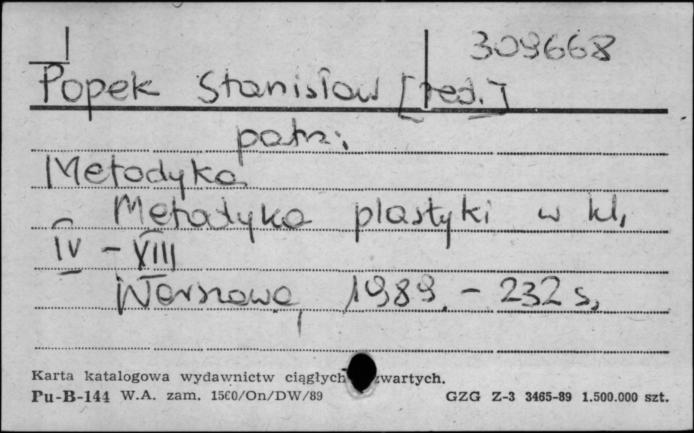 309668
Popek Stanisław [red.]
patrz:
Metodyka
Metodyka plastyki w kl,
IV - VIII
Warszawa, 1989. - 232 s,
Karta katalogowa wydawnictw ciągłych zwartych.
Pu-B-144 W.A. zam. 1560/On/DW/89 GZG Z-3 3465-89 1.500.000 szt.